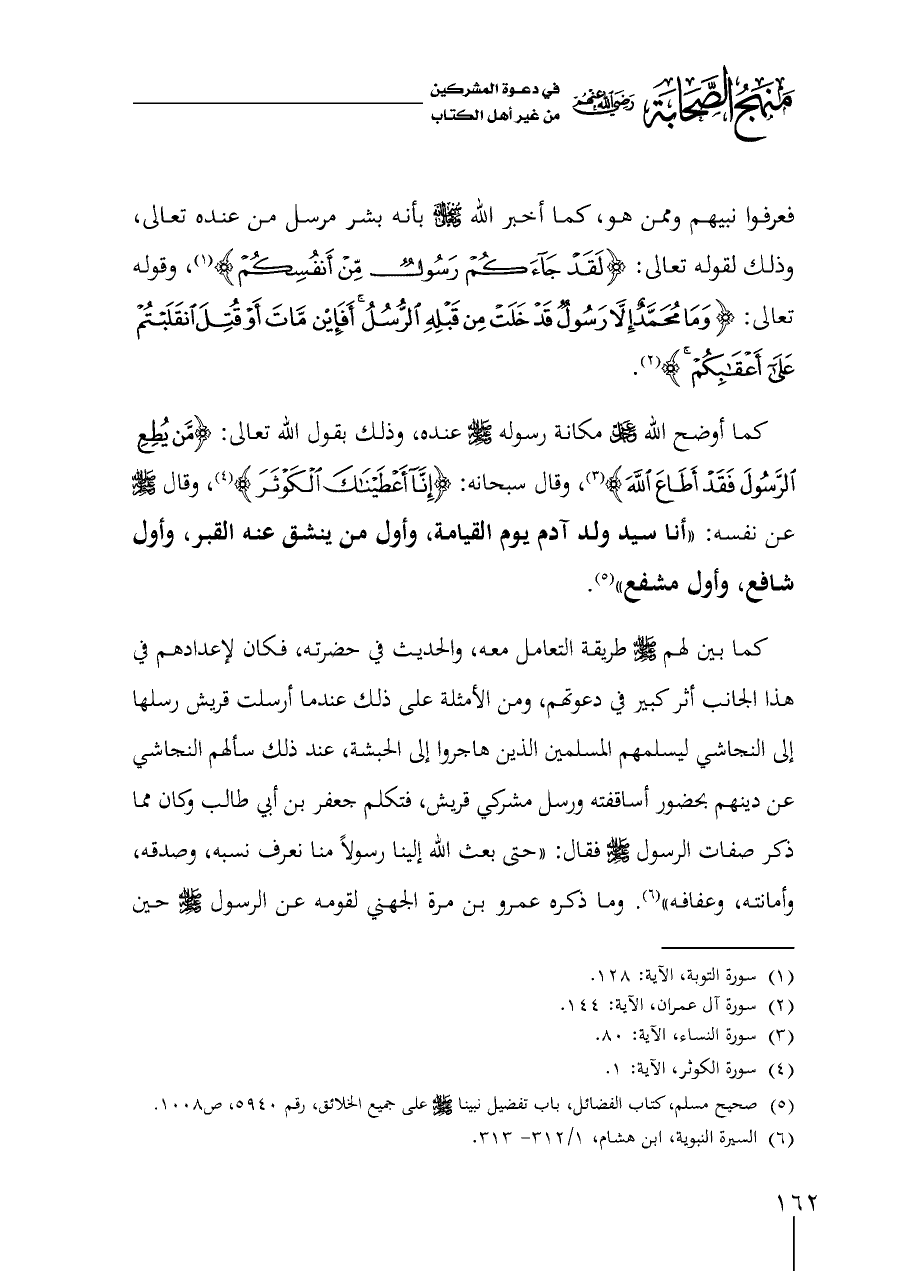 منهج الصحابة رضي الله عنهم
في دعوة المشركين
من غير أهل الكتاب
فعرفوا نبيهم وممن هو، كما أخبر الله ﷻ بأنه بشر مرسل من عنده تعالى،
وذلك لقوله تعالى: ﴿لَقَدْ جَآءَكُمْ رَسُولٌ مِّنْ أَنفُسِكُمْ﴾(١)، وقوله
تعالى: ﴿وَمَا مُحَمَّدٌ إِلَّا رَسُولٌ قَدْ خَلَتْ مِن قَبْلِهِ ٱلرُّسُلُ ۚ أَفَإِيْن مَّاتَ أَوْ قُتِلَ ٱنقَلَبْتُمْ
عَلَىٰٓ أَعْقَٰبِكُمْ ۚ﴾(٢).
كما أوضح الله ﷻ مكانة رسوله ﷺ عنده، وذلك بقول الله تعالى: ﴿مَّن يُطِعِ
ٱلرَّسُولَ فَقَدْ أَطَاعَ ٱللَّهَ﴾(٣)، وقال سبحانه: ﴿إِنَّآ أَعْطَيْنَٰكَ ٱلْكَوْثَرَ﴾(٤)، وقال ﷺ
عن نفسه: «أنا سيد ولد آدم يوم القيامة، وأول من ينشق عنه القبر، وأول
شافع، وأول مشفع»(٥).
كما بين لهم ﷺ طريقة التعامل معه، والحديث في حضرته، فكان لإعدادهم في
هذا الجانب أثر كبير في دعوتهم، ومن الأمثلة على ذلك عندما أرسلت قريش رسلها
إلى النجاشي ليسلمهم المسلمين الذين هاجروا إلى الحبشة، عند ذلك سألهم النجاشي
عن دينهم بحضور أساقفته ورسل مشركي قريش، فتكلم جعفر بن أبي طالب وكان مما
ذكر صفات الرسول ﷺ فقال: «حتى بعث الله إلينا رسولاً منا نعرف نسبه، وصدقه،
وأمانته، وعفافه»(٦). وما ذكره عمرو بن مرة الجهني لقومه عن الرسول ﷺ حين
(١) سورة التوبة، الآية: ١٢٨.
(٢) سورة آل عمران، الآية: ١٤٤.
(٣) سورة النساء، الآية: ٨٠.
(٤) سورة الكوثر، الآية: ١.
(٥) صحيح مسلم، كتاب الفضائل، باب تفضيل نبينا ﷺ على جميع الخلائق، رقم ٥٩٤٠، ص١٠٠٨.
(٦) السيرة النبوية، ابن هشام، ٣١٢/١- ٣١٣.
١٦٢